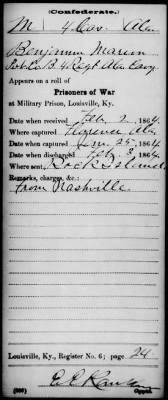 (Confederate.)
M 4 Cav. Ala
Benjamin Marion
Pvt Co. B. 4 Regt Ala Cavy
Appears on a roll of
Prisoners of War
at Military Prison, Louisville, Ky.
Date received Feb 2, 1864.
Where captured Florence Ala
Date when captured Jan. 25, 1864
Date when discharged Feb. 3, 1864.
Where sent Rock Island
Remarks, charges, &c.:
From Nashville.
Louisville, Ky., Register No. 6; page 24
Copyist.